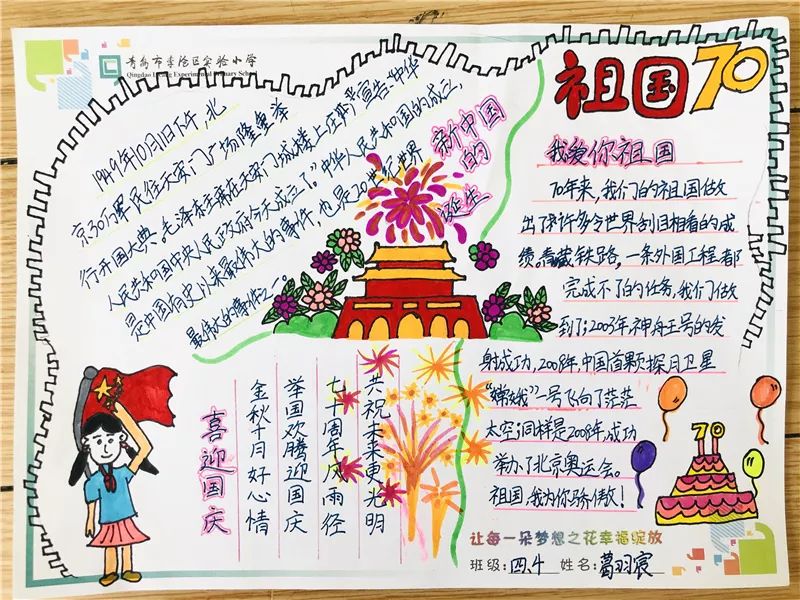 青岛市李沧区实验小学
Qingdao Licang Experimental Primary School
祖国70
新中国
的
诞生
1949年10月1日下午,北
京30万军民在天安门广场隆重举
行开国大典。毛泽东主席在天安门城楼上庄严宣告"中华
人民共和国中央人民政府今天成立了!"中华人民共和国的成立,
是中国有史以来最伟大的事件,也是20世纪世界
最伟大的事件之一。
我爱你祖国
70年来,我们的祖国做
出了许多令世界刮目相看的成
绩。青藏铁路,一条外国工程都
完成不了的任务,我们做
到了;2003年,神舟五号的发
射成功,2008年,中国首颗探月卫星
"嫦娥"一号飞向了茫茫
太空;同样是2008年,成功
举办了北京奥运会。
祖国,我为你骄傲!
喜迎国庆
金秋十月好心情
举国欢腾迎国庆
七十周年风雨径
共祝未来更光明
70
让每一朵梦想之花幸福绽放
班级:四.4 姓名:葛羽宸